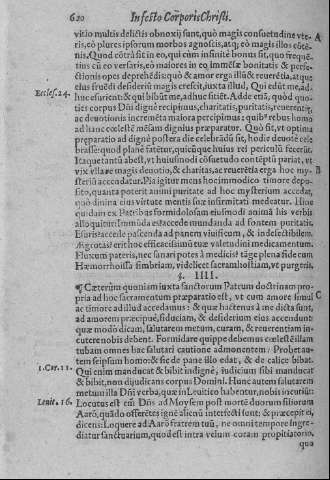 620 In festo Corporis Christi.
vitio multis delictis obnoxij sunt, quò magis consuetudine vte-
ris, eò plures ipsorum morbos agnoscis, atq; eò magis illos côtê-
nis. Quod côtrà sit in eo, qui cùm infinitè bonus sit, quo frequê-
tius cû eo versaris, eò maiores in eo immêsæ bonitatis & perfe-
ctionis opes deprehêdis: quò & amor erga illû & reuerêtia, atque
eius fruêdi desideriû magis crescit, iuxta illud, Qui edût me, ad-
Eccles. 24. huc esurient: & qui bibût me, adhuc sitiêt. Adde etiâ, quòd quo-
ties corpus Dñi dignè recipimus, charitatis, puritatis, reuerentiæ,
ac deuotionis incremêta maiora percipimus: quibꝰ rebus homo
ad hanc cœlestê mêsam dignius præparatur. Quò fit, vt optima
præparatio ad dignè postera die celebrâdû sit, hodie deuotè cele-
brasse: quod planè fatetur, quicûque huius rei periculû fecerit.
Itaque tantû abest, vt huiusmodi côsuetudo contêptû pariat, vt
vix vlla re magis deuotio, & charitas, ac reuerêtia erga hoc my- B
steriû accendatur. Pia igitur mens hoc immodico timore depo-
sito, quanta poterit animi puritate ad hoc mysterium accedat,
quò diuina eius virtute mentis suæ infirmitati medeatur. Hinc
quidam ex Patribus formidolosam eiusmodi animâ his verbis
alloquitur: Immûda es? accede mundanda ad fontem puritatis.
Esuris? accede pascenda ad panem viuificum, & indefectibilem.
Ægrotas? erit hoc efficacissimû tuæ valetudini medicamentum.
Fluxum pateris, nec sanari potes à medicis? tâge plena fide cum
Hæmorrhoissa fimbriam, videlicet sacram hostiam, vt purgeris.
§. IIII.
¶ Cæterùm quoniam iuxta sanctorum Patrum doctrinam pro-
pria ad hoc sacramentum præparatio est, vt cum amore simul
ac timore ad illud accedamus: & quæ hactenus à me dicta sunt,
ad amorem præcipuè, fiduciam, & desiderium eius accendunt:
quæ modò dicam, salutarem metum, curam, & reuerentiam in-
cutere nobis debent. Formidare quippe debemus cœlestê illam
tubam omnes hac salutari cautione admonentem: Probet au-
tem seipsum homo: & sic de pane illo edat, & de calice bibat.
1. Cor. 11. Qui enim manducat & bibit indignè, iudicium sibi manducat
& bibit, non dijudicans corpus Domini. Hunc autem salutarem
metum illa Dñi verba, quæ in Leuitico habentur, nobis incutiût:
Leuit. 16. Locutus est eñi Dñs ad Moysem post mortê duorum filiorum
Aarô, quâdo offerêtes ignê alienû interfecti sunt: & præcepit ei,
dicens: Loquere ad Aarô fratrem tuû, ne omni tempore ingre-
diatur sanctuarium, quod est intra velum coram propitiatorio,
quo